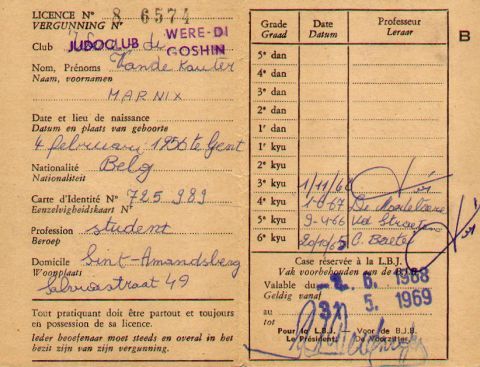 LICENCE N° 8 6574
VERGUNNING N°
Club JUDOCLUB WERE-DI
GOSHIN
Nom, Prénoms Vande Kauter
Naam, voornamen
MARNIX
Date et lieu de naissance
Datum en plaats van geboorte
4 februari 1956 te Gent
Nationalité Belg
Nationaliteit
Carte d'Identité N° 725 989
Eenzelvigheidskaart N°
Profession student
Beroep
Domicile Sint-Amandsberg
Woonplaats
straat 49
Tout pratiquant doit être partout et toujours
en possession de sa licence.
Ieder beoefenaar moet steeds en overal in het
bezit zijn van zijn vergunning.
Grade Date Professeur
Graad Datum Leraar
B
5e dan
4e dan
3e dan
2e dan
1r dan
1r kyu
2e kyu
3e kyu 1/11/68
4e kyu 1-6-67
5e kyu 9-4-66
6e kyu 20/10/65 C. Baete
Case réservée à la L.B.J.
Vak voorbehouden aan de B.J.B.
Valable du - 2. 6. 1968
Geldig vanaf
au 31 5. 1969
tot
Pour de L.B.J. — Voor de B.J.B.
Le Président, De Voorzitter,